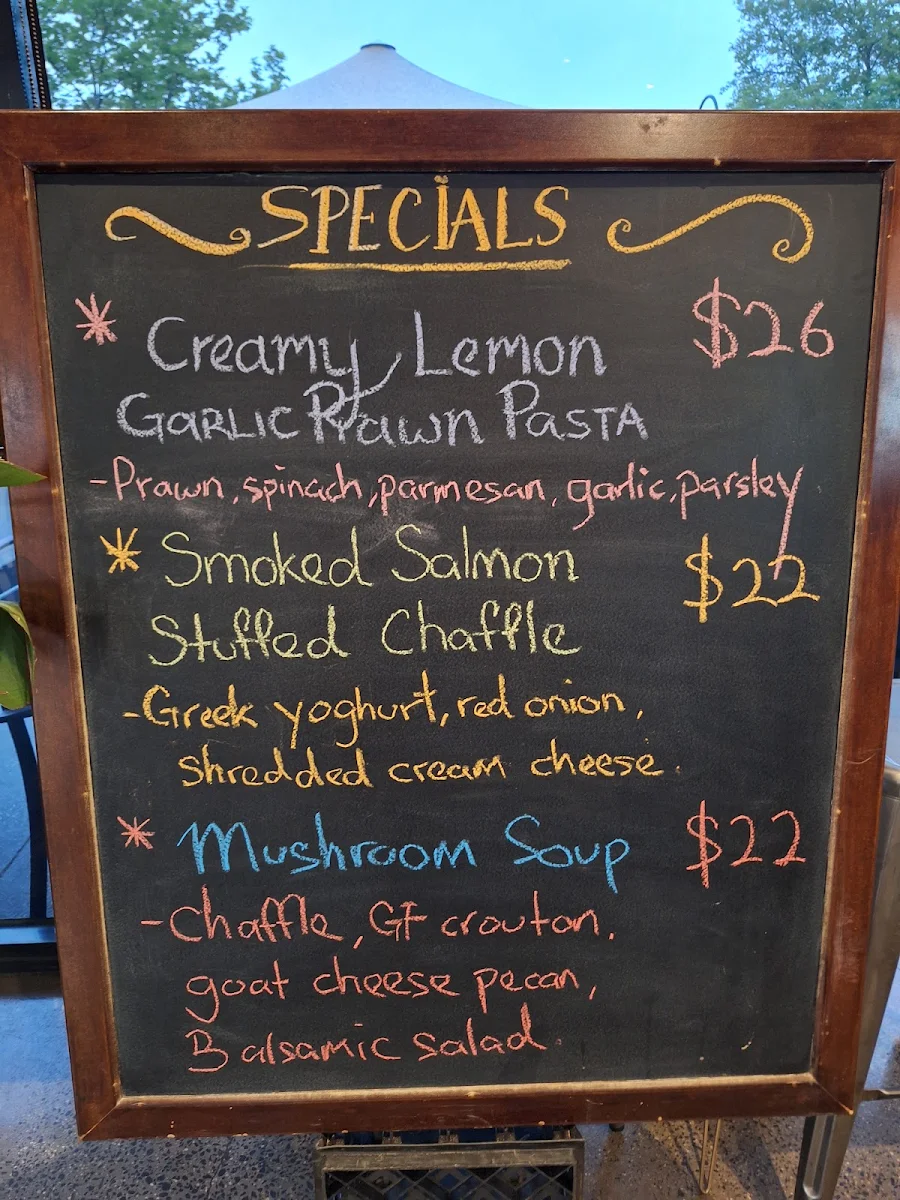 SPECIALS
* Creamy Lemon $26
GARLIC Prawn PASTA
-Prawn, spinach, parmesan, garlic, parsley
* Smoked Salmon $22
Stuffed Chaffle
-Greek yoghurt, red onion,
shredded cream cheese.
* Mushroom Soup $22
-Chaffle, GF crouton,
goat cheese pecan,
Balsamic salad.